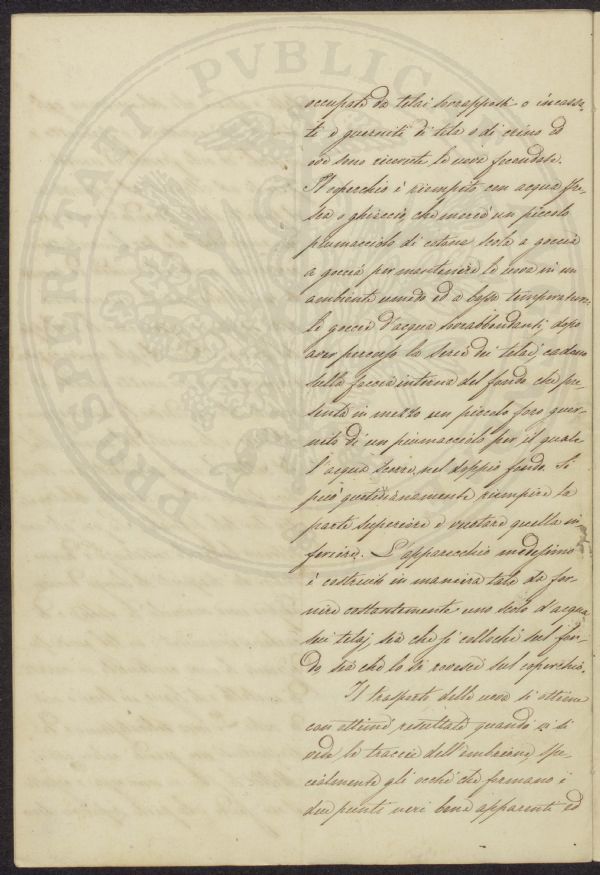 PROSPERITATI PVBLICAE
occupati da telai sovrapposti o incassa-
ti e guerniti di tela o di crino ed
ove sono ricevute le uova fecondate.
Il coperchio è riempito con acqua fre-
sca o ghiaccio, che mercè un piccolo
piumacciolo di cotone scola a goccia
a goccia per mantenere le uova in un
ambiente umido ed a bassa temperatura.
Le goccie d'acqua sovrabbondanti, dopo
aver percorso la serie dei telai, cadono
sulla faccia interna del fondo che pre-
senta in mezzo un piccolo foro guer-
nito di un piumacciolo per il quale
l'acqua scorre nel doppio fondo. Si
può quotidianamente riempire la
parte superiore e vuotare quella in-
feriore. L'apparecchio medesimo
è costruito in maniera tale da for-
nire costantemente uno scolo d'acqua
sui telaj, sia che si collochi sul fon-
do, sia che lo si rovesci sul coperchio.
Il trasporto delle uova si ottiene
con ottimi risultati quando vi si
vede le traccie dell'embrione, spe-
cialmente gli occhi che formano i
due punti neri bene apparenti ed